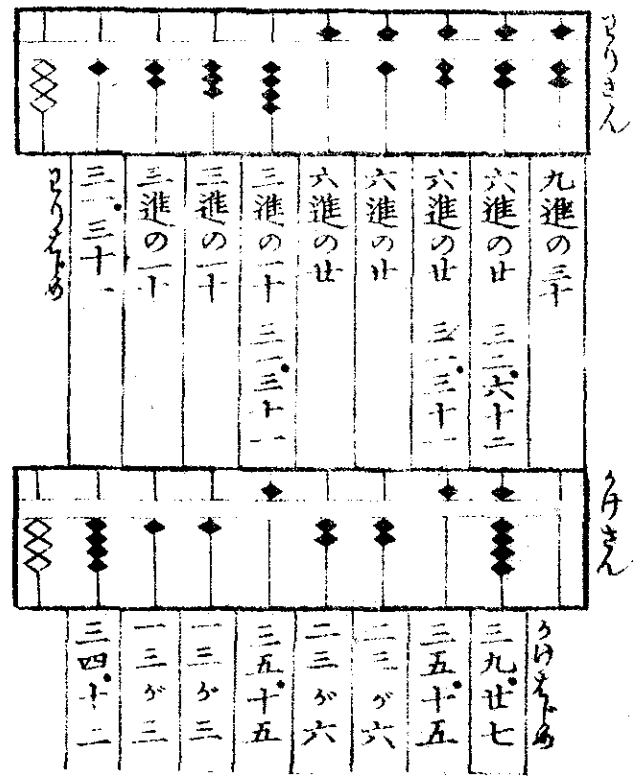 わりさん
九進の三十
六進の廿 三二六十二
六進の廿 三一三十一
六進の廿
六進の廿
三進の一十 三一三十一
三進の一十
三進の一十
三一三十一
わりはじめ
かけさん
かけはじめ
三九廿七
三五十五
二三が六
二三が六
三五十五
一三が三
一三が三
三四十二